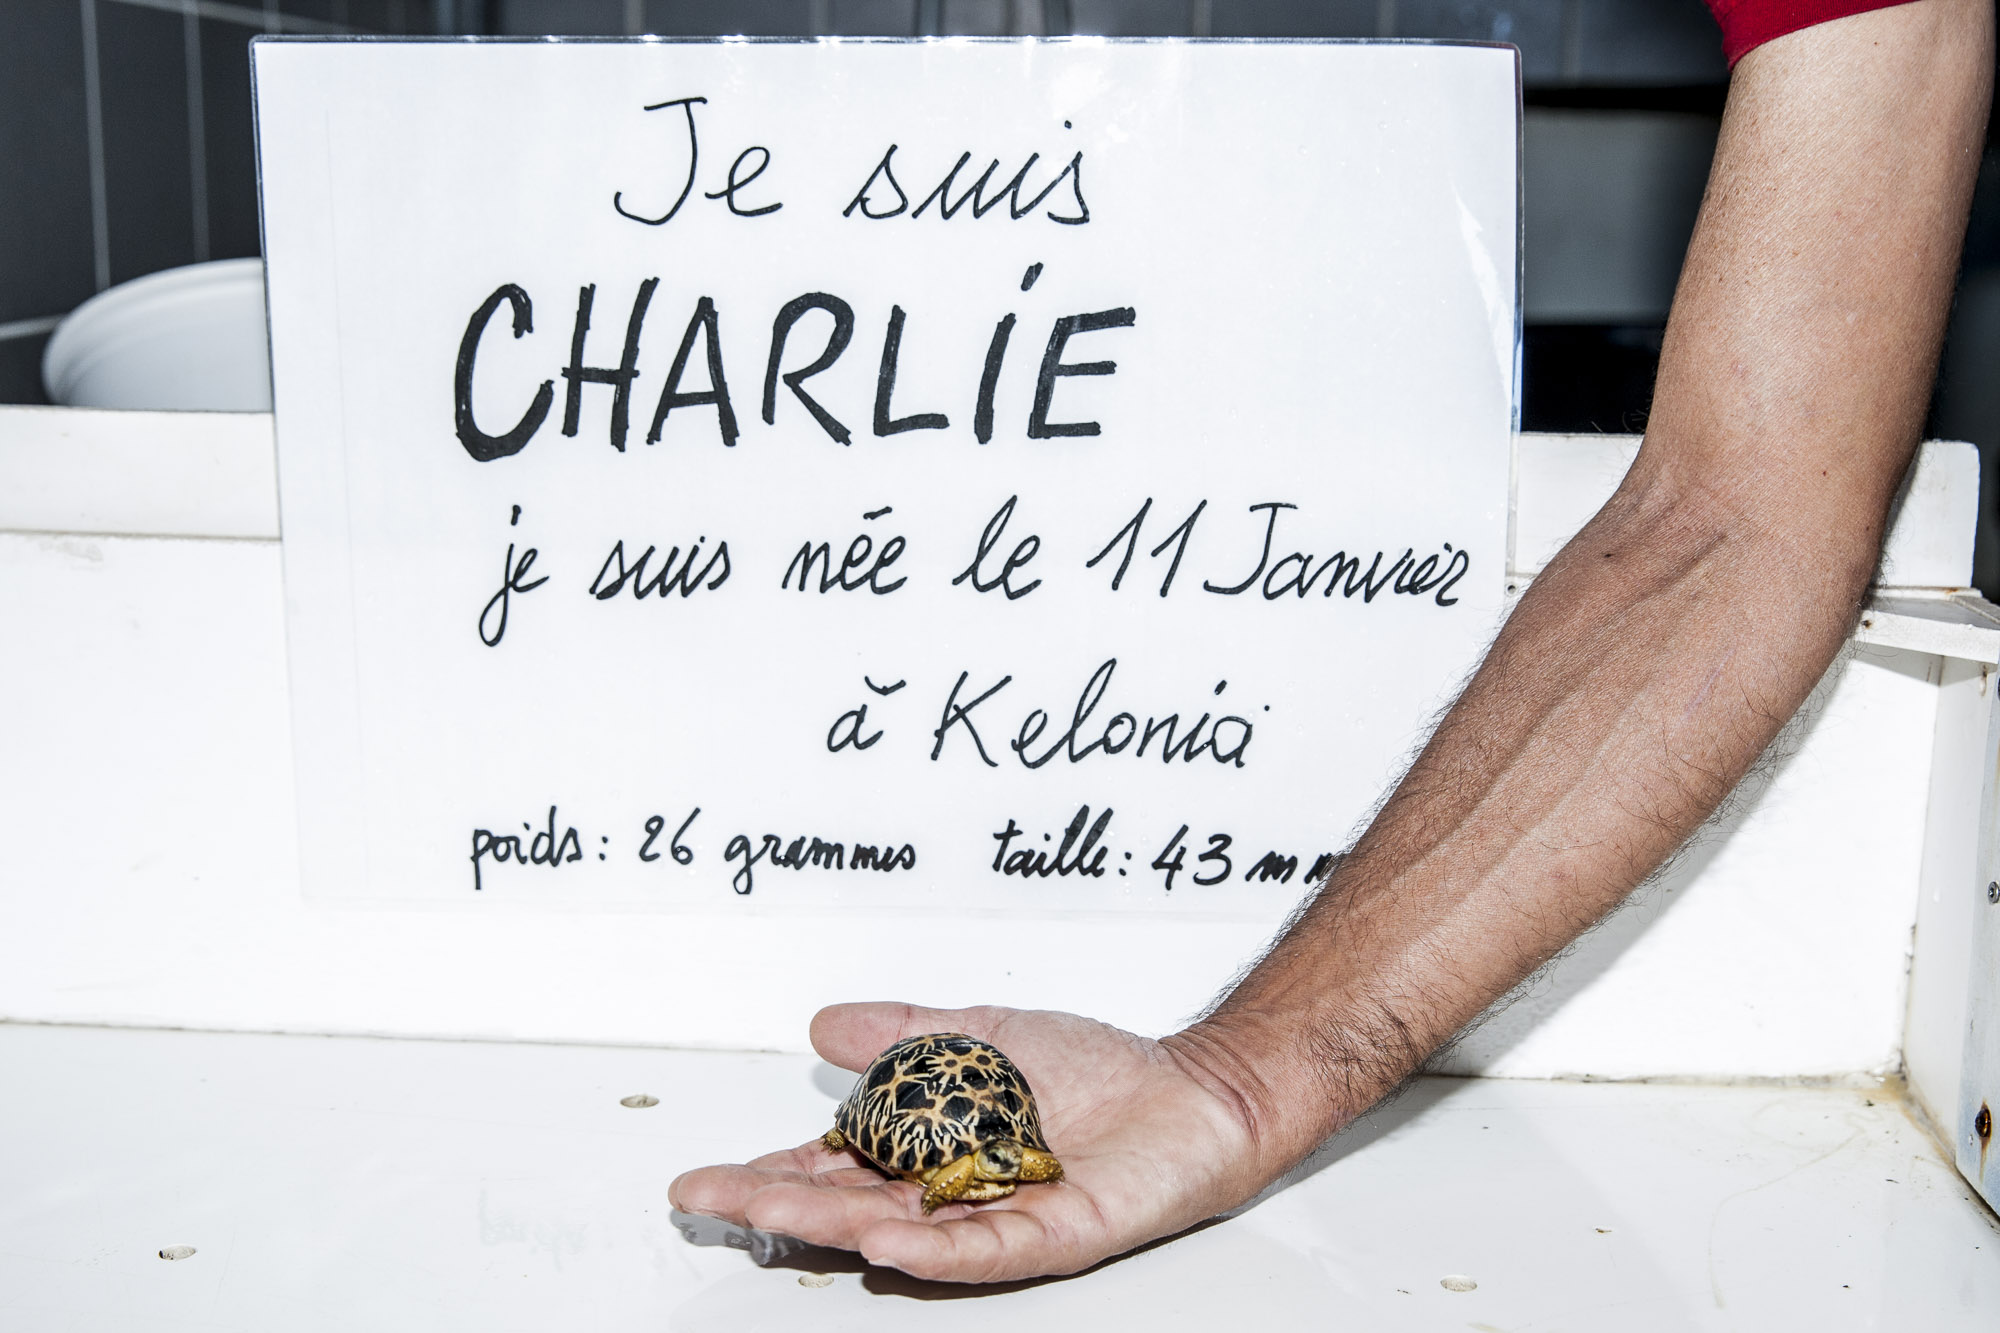 Je suis
CHARLIE
je suis née le 11 Janvier
à Kelonia
poids : 26 grammes taille : 43 mm